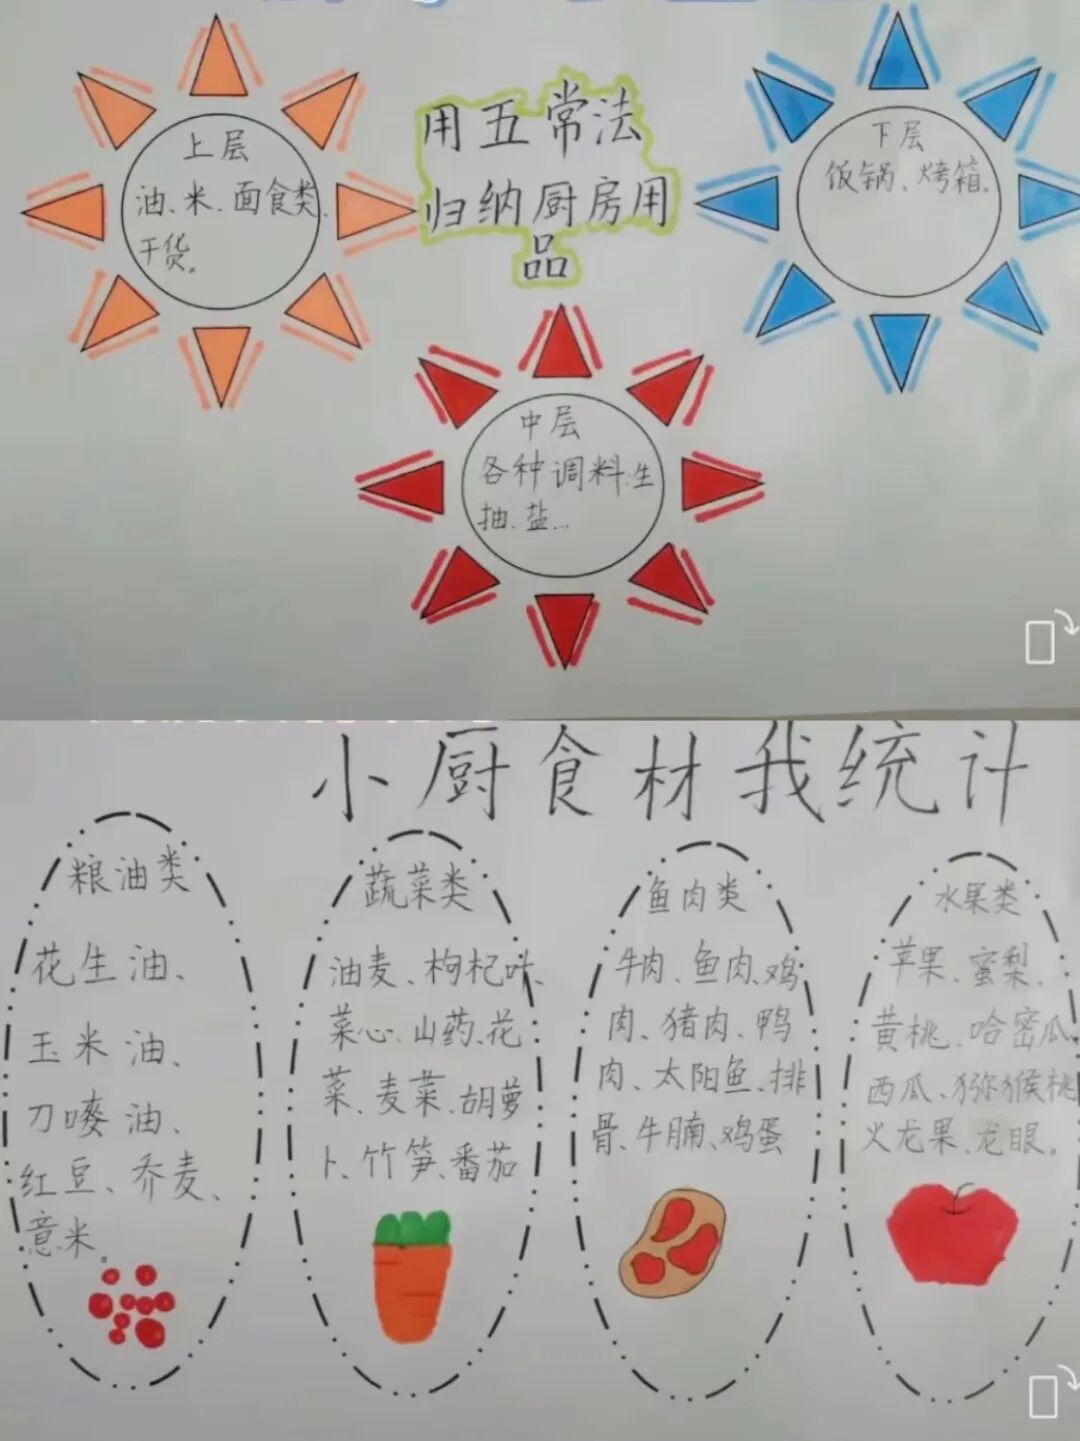 用五常法
归纳厨房用
品
上层
油、米、面食类、
干货。
下层
饭锅、烤箱。
中层
各种调料:生
抽、盐...
小厨食材我统计
粮油类
花生油、
玉米油、
刀唛油、
红豆、乔麦、
意米。
蔬菜类
油麦、枸杞叶、
菜心、山药、花
菜、麦菜、胡萝
卜、竹笋、番茄
鱼肉类
牛肉、鱼肉、鸡
肉、猪肉、鸭
肉、太阳鱼、排
骨、牛腩、鸡蛋
水果类
苹果、蜜梨、
黄桃、哈密瓜、
西瓜、猕猴桃
火龙果、龙眼。